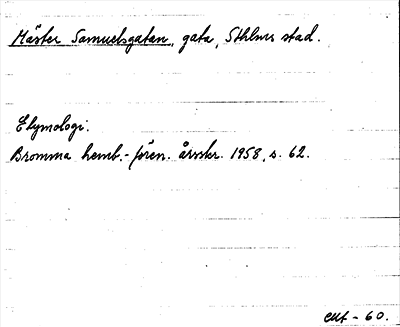 Mäster Samuelsgatan, gata, Sthlms stad.
Etymologi.
Bromma hemb.-fören. årsskr. 1958, s. 62.
-60.